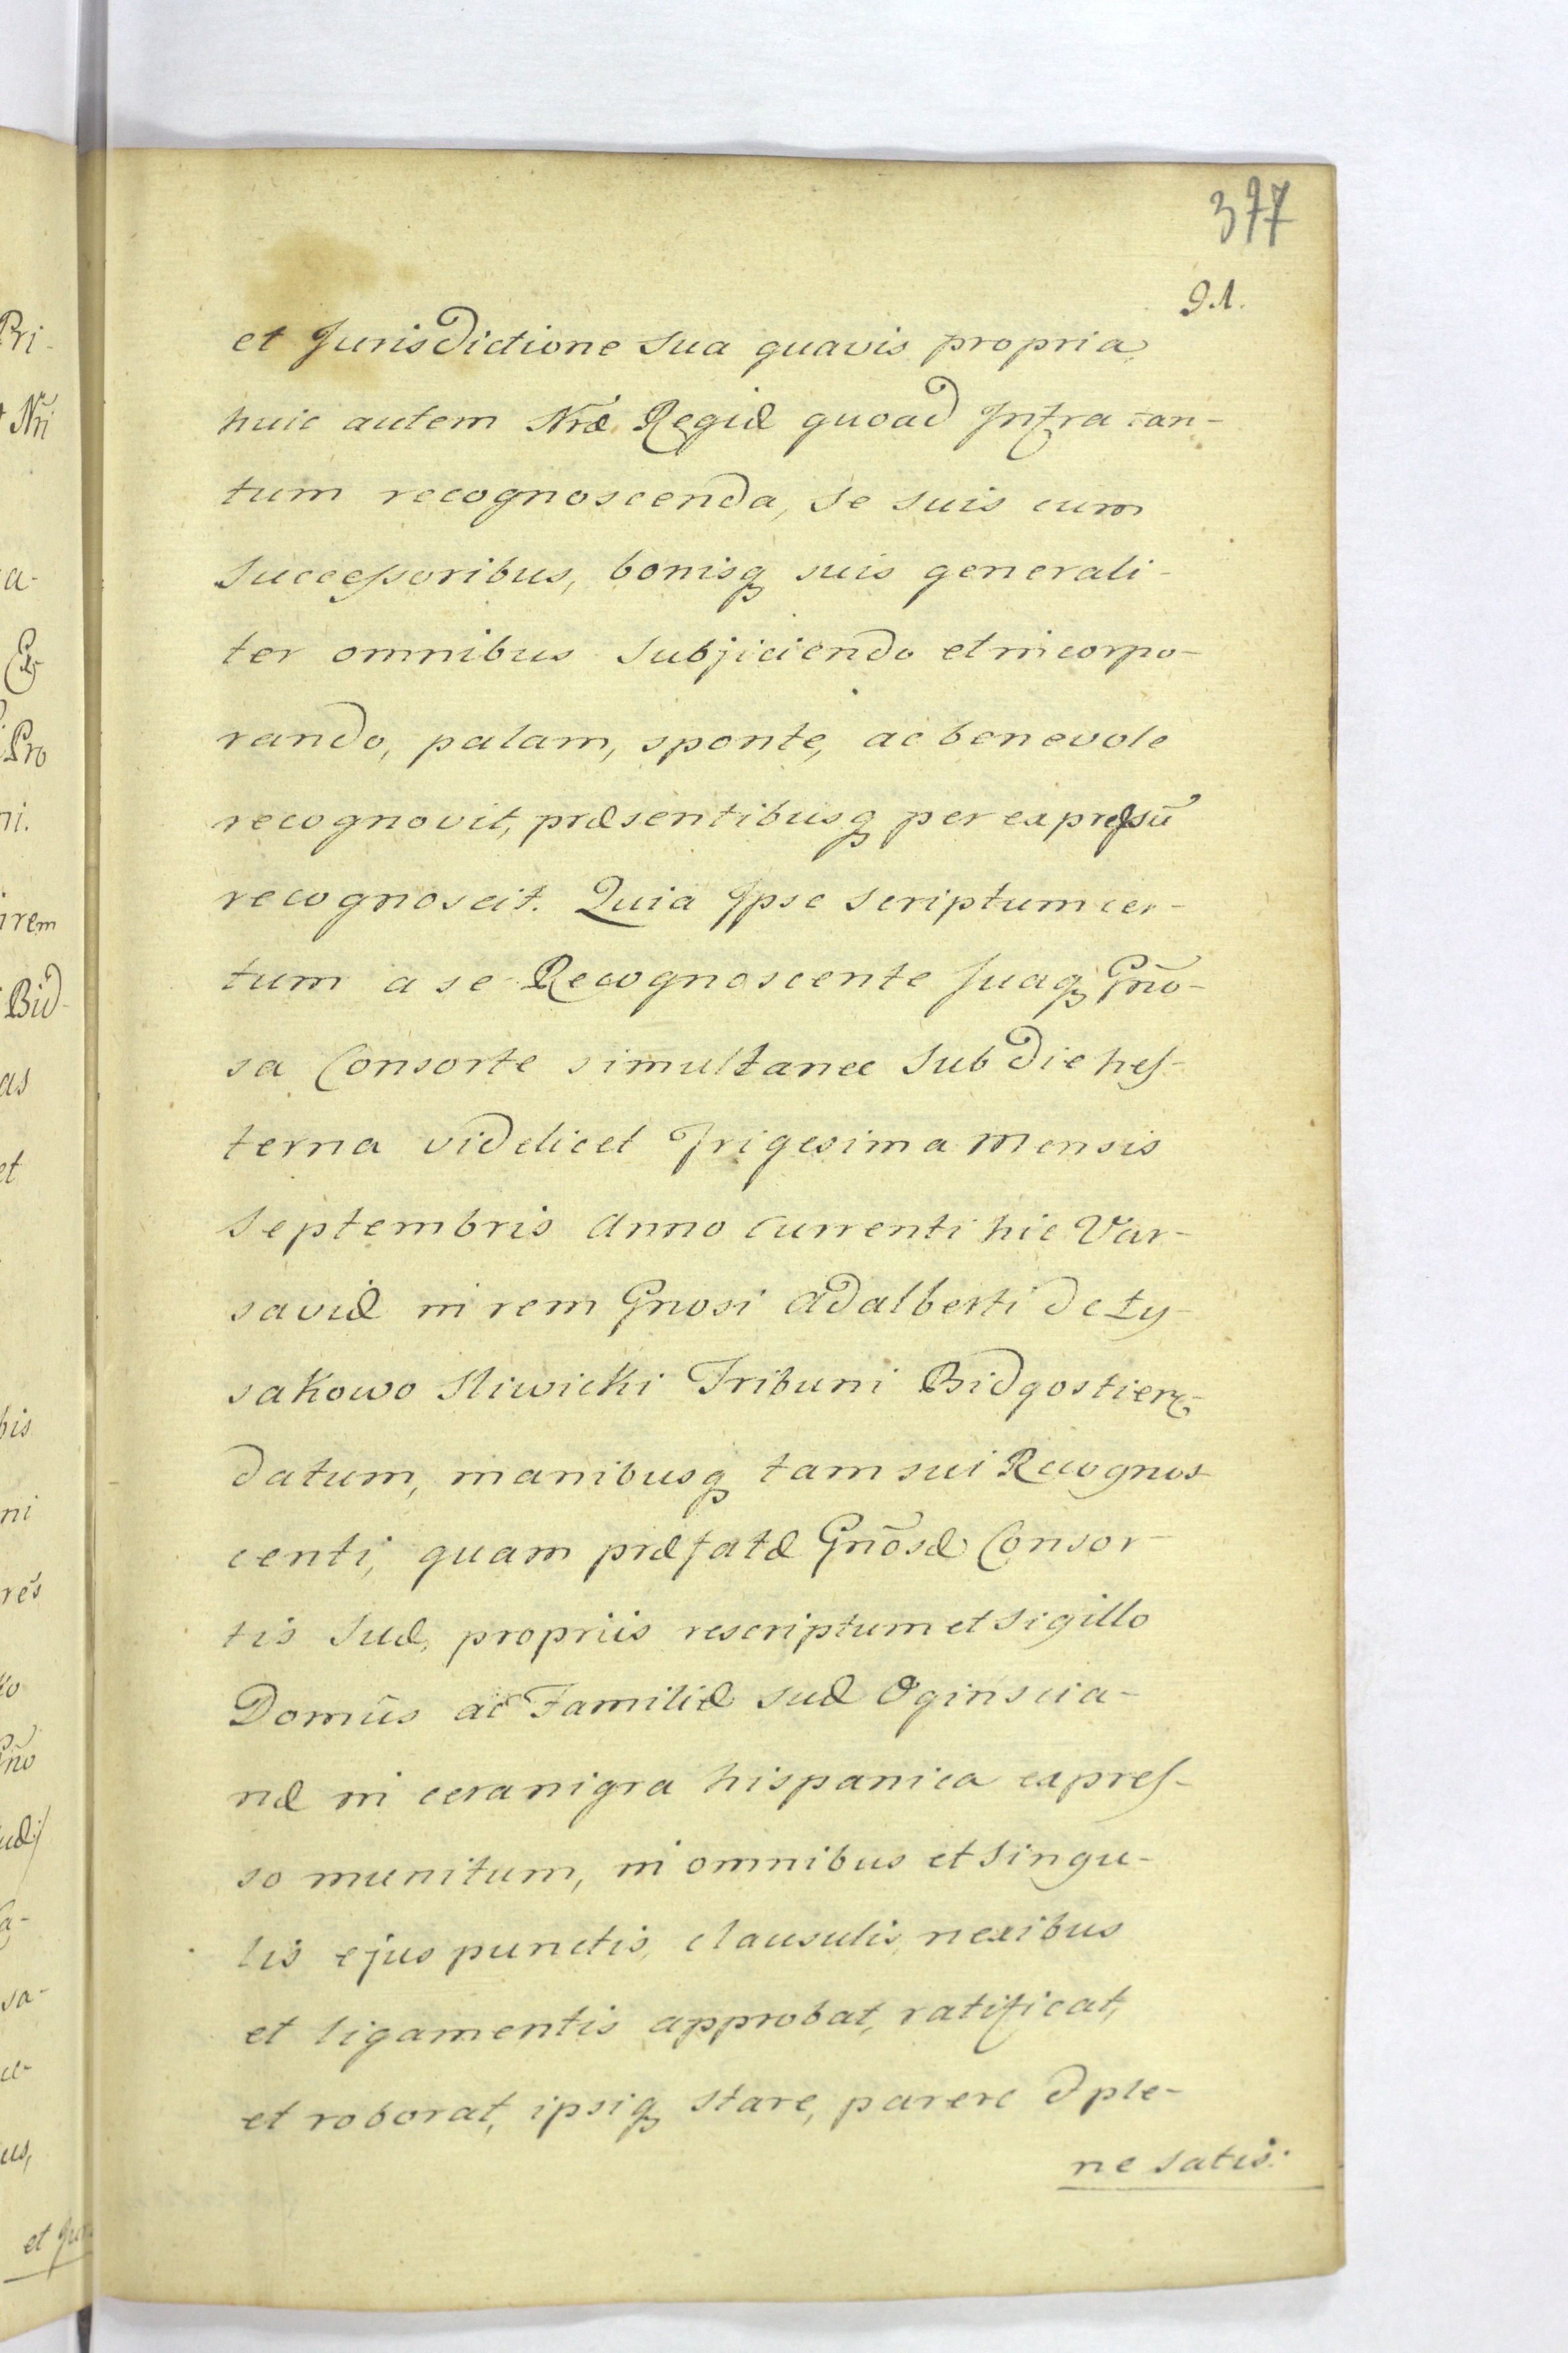 377
91.
et Jurisdictione sua quavis propria
huic autem Nræ Regiæ quoad Infra tan-
tum recognoscenda, se suis cum
Successoribus, bonisq suis generali-
ter omnibus subjiciendo et incorpo-
rando, palam, sponte, ac benevole
recognovit, præsentibusq per expressū
recognoscit. Quia Ipse scriptum cer-
tum a se Recognoscente suaq Gño-
sa Consorte simultanee sub die hes-
terna videlicet Trigesima Mensis
Septembris Anno currenti hic Var-
saviæ in rem Gnosi Adalberti de Ły-
sakowo Sliwicki Tribuni Bidgostien:
datum, manibusq tam sui Recognos
centi, quam præfatæ Gñosæ Consor-
tis suæ, propriis rescriptum et sigillo
Domûs ac Familiæ suæ Oginscia-
næ in cera nigra hispanica expres-
so munitum, in omnibus et singu-
lis ejus punctis, clausulis, nexibus
et ligamentis approbat, ratificat,
et roborat, ipsiq stare, parere & ple-
ne satis:
Pri-
Nri
a-
Pro
ni.
irem
Bid-
as
et
bis
ni
res
ko
Gño
uæ/
sa-
us,
et Ju